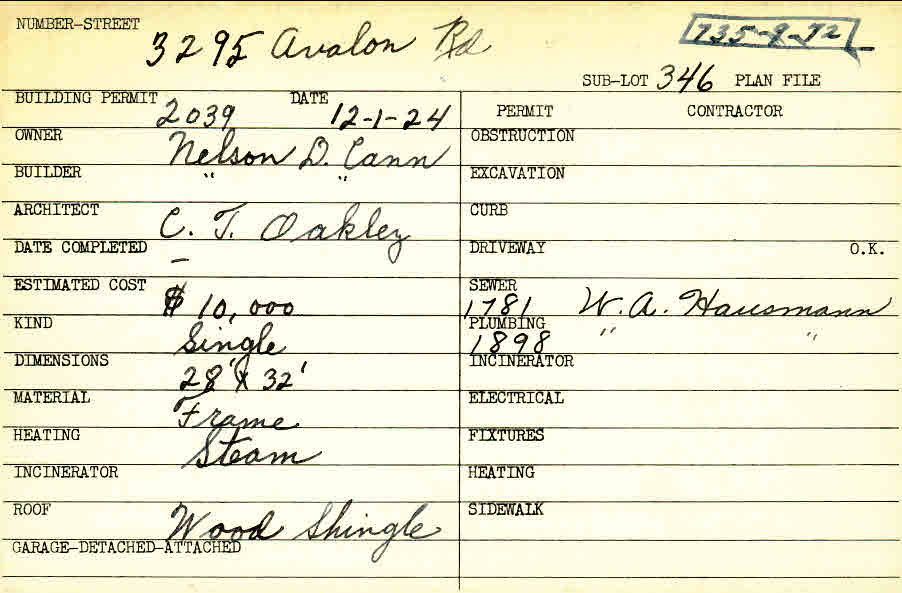 NUMBER-STREET 3295 Avalon Rd
735-9-72
SUB-LOT 346 PLAN FILE
BUILDING PERMIT 2039 DATE 12-1-24
OWNER Nelson D. Cann
BUILDER " "
ARCHITECT C. T. Oakley
DATE COMPLETED -
ESTIMATED COST $10,000
KIND Single
DIMENSIONS 28' X 32'
MATERIAL Frame
HEATING Steam
INCINERATOR
ROOF Wood Shingle
GARAGE-DETACHED-ATTACHED
PERMIT CONTRACTOR
OBSTRUCTION
EXCAVATION
CURB
DRIVEWAY O.K.
SEWER
1781 W. A. Hausmann
PLUMBING
1898 " "
INCINERATOR
ELECTRICAL
FIXTURES
HEATING
SIDEWALK